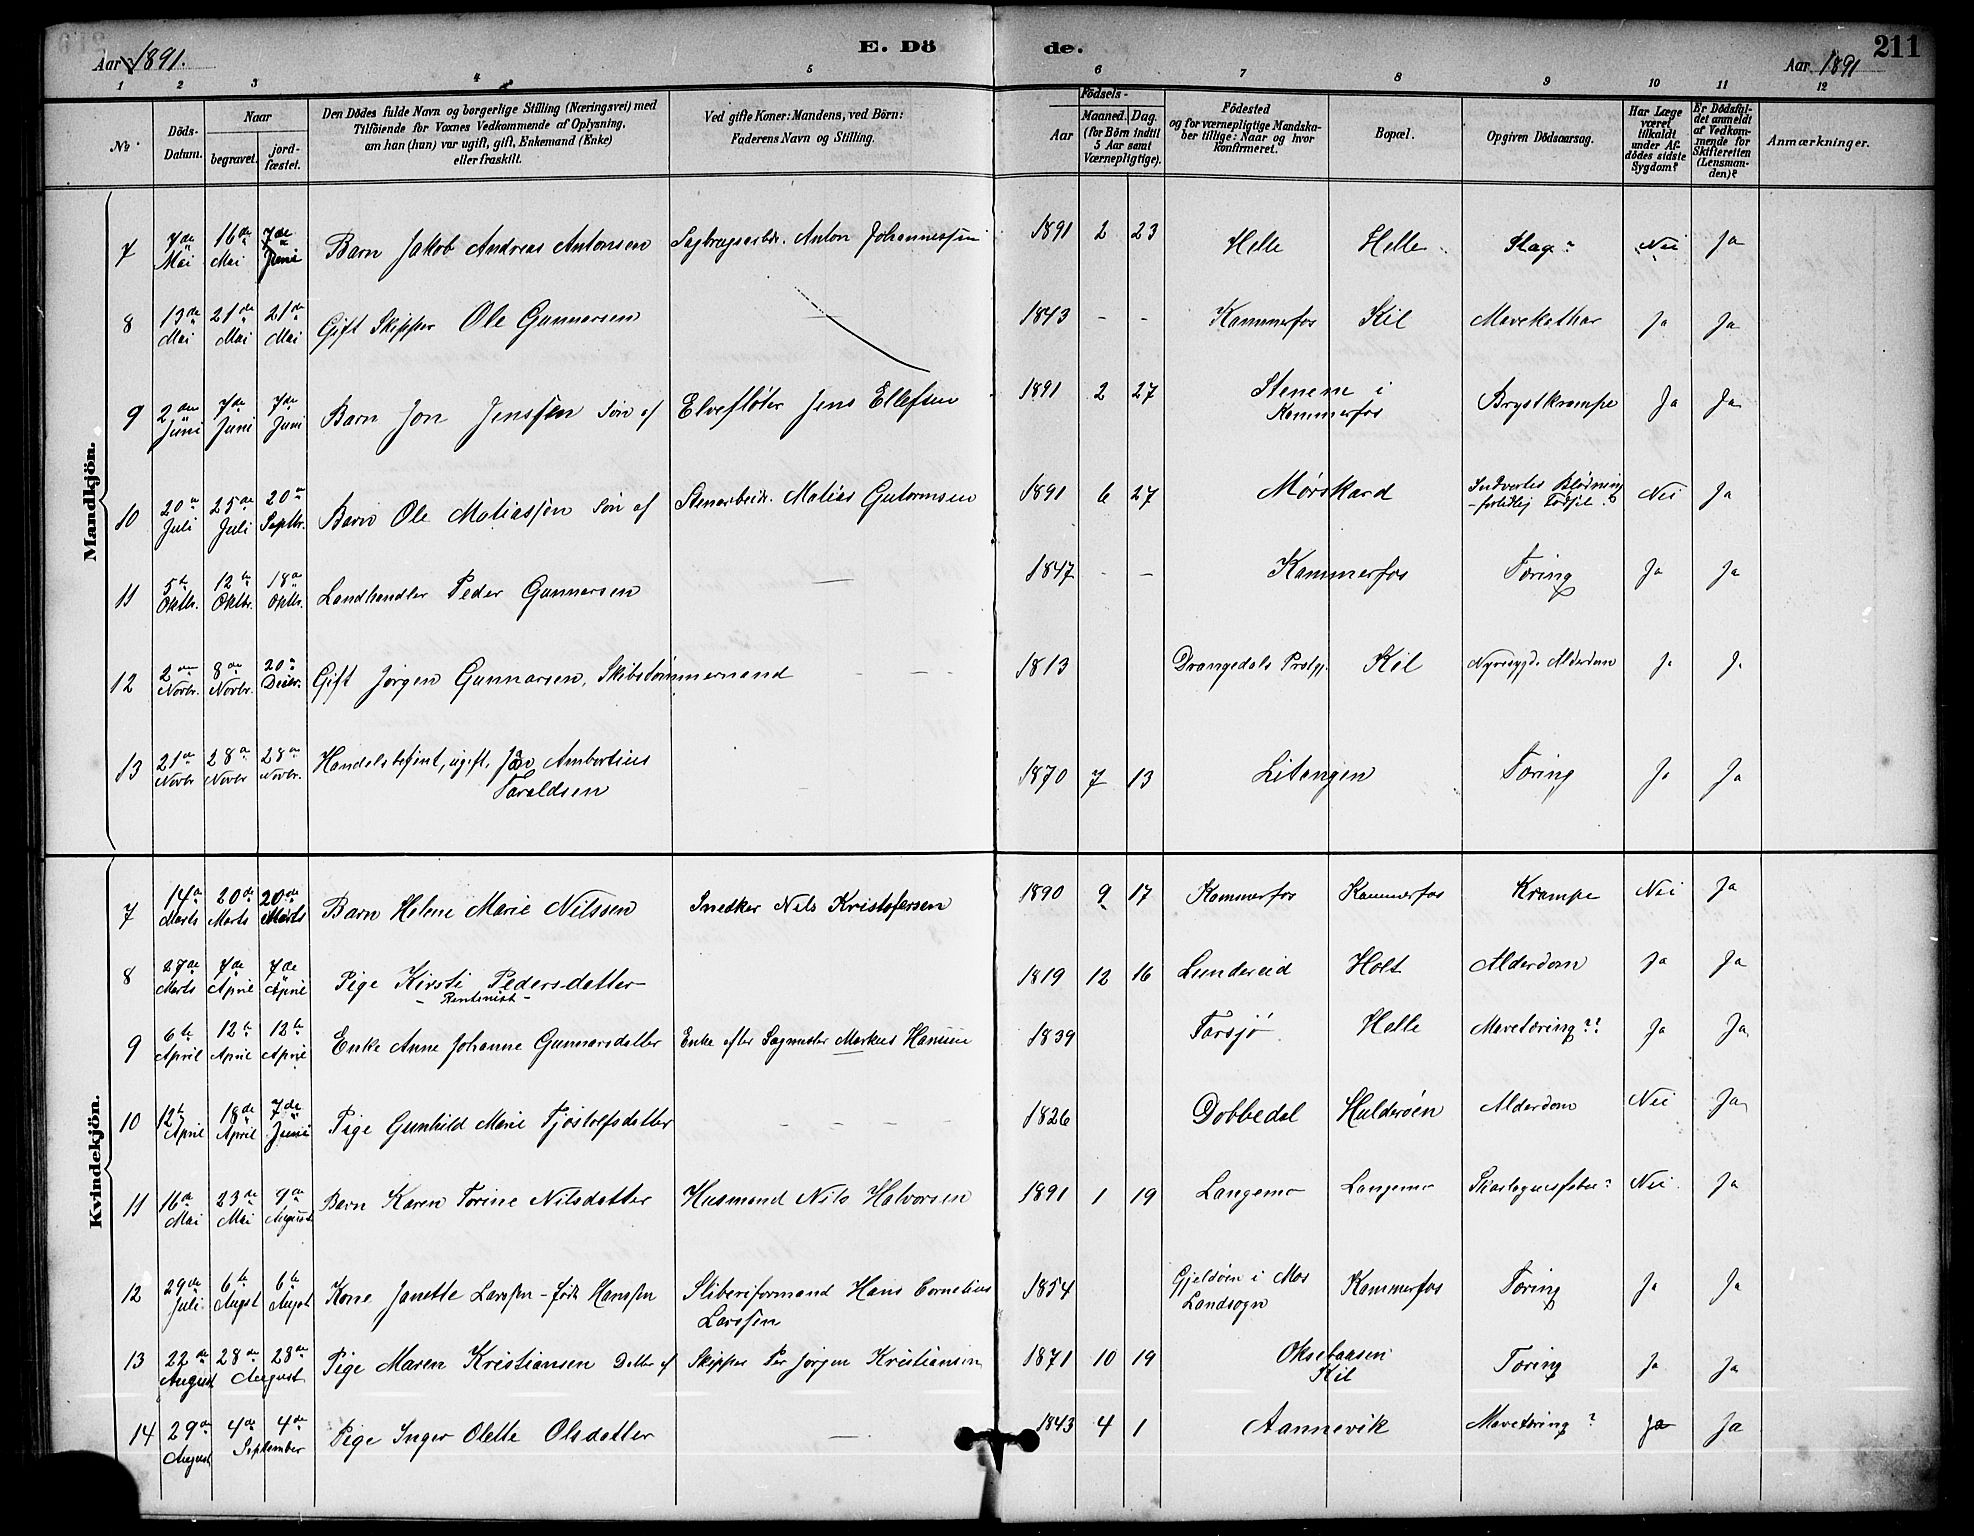 Aar 1891. E. Dö de. Aar 1891 211
1 2 3 4 5 6 7 8 9 10 11 12
No.
Döds-Datum.
Naar
begravet.
jord-fæstet.
Den Dödes fulde Navn og borgerlige Stilling (Næringsvei) med
Tilföiende for Voxnes Vedkommende af Oplysning,
om han (hun) var ugift, gift, Enkemand (Enke)
eller fraskilt.
Ved gifte Koner: Mandens, ved Börn:
Faderens Navn og Stilling.
Födsels-
Aar
Maaned. Dag.
(for Börn indtil
5 Aar samt
Værnepligtige).
Födested
og for værnepligtige Mandska-
ber tillige: Naar og hvor
konfirmeret.
Bopæl.
Opgiven Dödsaarsag.
Har Læge
været
tilkaldt
under Af-
dödes sidste
Sygdom?
Er Dödsfal-
det anmeldt
af Vedkom-
mende for
Skifteretten
(Lensman-
den)?
Anmærkninger.
Mandkjön.
7 7de Mai 16de Mai 7de Juni Barn Jakob Andreas Antonsen Anton Johannessen 1891 2 23 Helle Helle Slag? Nei Ja
8 13de Mai 21de Mai 21de Mai Gift Skipper Ole Gunnarsen — 1843 - - Kammerfos Kil Mavekathar Ja Ja
9 2den Juni 7de Juni 7de Juni Barn Jon Jenssen Søn af Elvefløter Jens Ellefsen 1891 2 27 Stenene i
Kammerfos Brystkrampe Ja Ja
10 20de Juli 25de Juli 20de Septbr. Barn Ole Matiassen Søn af Stenarbeidr. Matias Gutormsen 1891 6 27 Mørskard Indvortes Blødning
Nei Ja
11 5te Oktbr. 12te Oktbr. 18de Oktbr. Landhandler Peder Gunnarsen — 1847 - - Kammerfos Tæring Ja Ja
12 2den Novbr. 8de Novbr. 20de Decbr. Gift Jørgen Gunnarsen, Skibstømmermand - - - 1813 Drangedals Prstgj. Kil Nyresygd. Alderdom Ja J.
13 21de Novbr 28de Novbr 28de Novbr. Handelsbetjent, ugift, Jan Ambortius
Taraldsen 1870 7 13 Litangen Tæring Ja Ja
Kvindekjön.
7 14de Marts 20de Marts 20de Marts Barn Helene Marie Nilssen Snedker Nils Kristofersen 1890 9 17 Kammerfos Kammerfos Krampe Nei Ja
8 27de Marts 7de April 7de April Pige Kirsti Pedersdatter
- Rentenist - 1819 12 16 Lundereid Holt Alderdom Ja Ja
9 6te April 12te April 12te April Enke Anne Johanne Gunnarsdatter Enke efter Sagmester Markus Hansen 1839 Farsjø Helle Mavetæring?? Ja Ja
10 12te April 18de April 7de Juni Pige Gunhild Marie Tjøstolfsdatter - - - - - 1826 Dobbedal Hulderøen Alderdom Nei Ja
11 16de Mai 23de Mai 9de August Barn Karen Torine Nilsdatter Husmand Nils Halvorsen 1891 1 19 Langemo Langemo Skarlagensfeber? Nei Ja
12 29de Juli 6te Augst 6te Augst Kone Janette Larssen - født Hanssen Sliberiformand Hans Cornelius
Larssen 1854 Gjeldøen i Mos
Landsogn Kammerfos Tæring Ja Ja
13 22de August 28de 28de August Pige Maren Kristiansen Datter af Skipper Per Jørgen Kristiansen 1871 10 19 Oksebaasen
Kil Tæring Ja Ja
14 29de August 4de 4de September Pige Inger Olette Olsdatter — 1843 4 1 Aannevik Mavetæring? Ja Ja